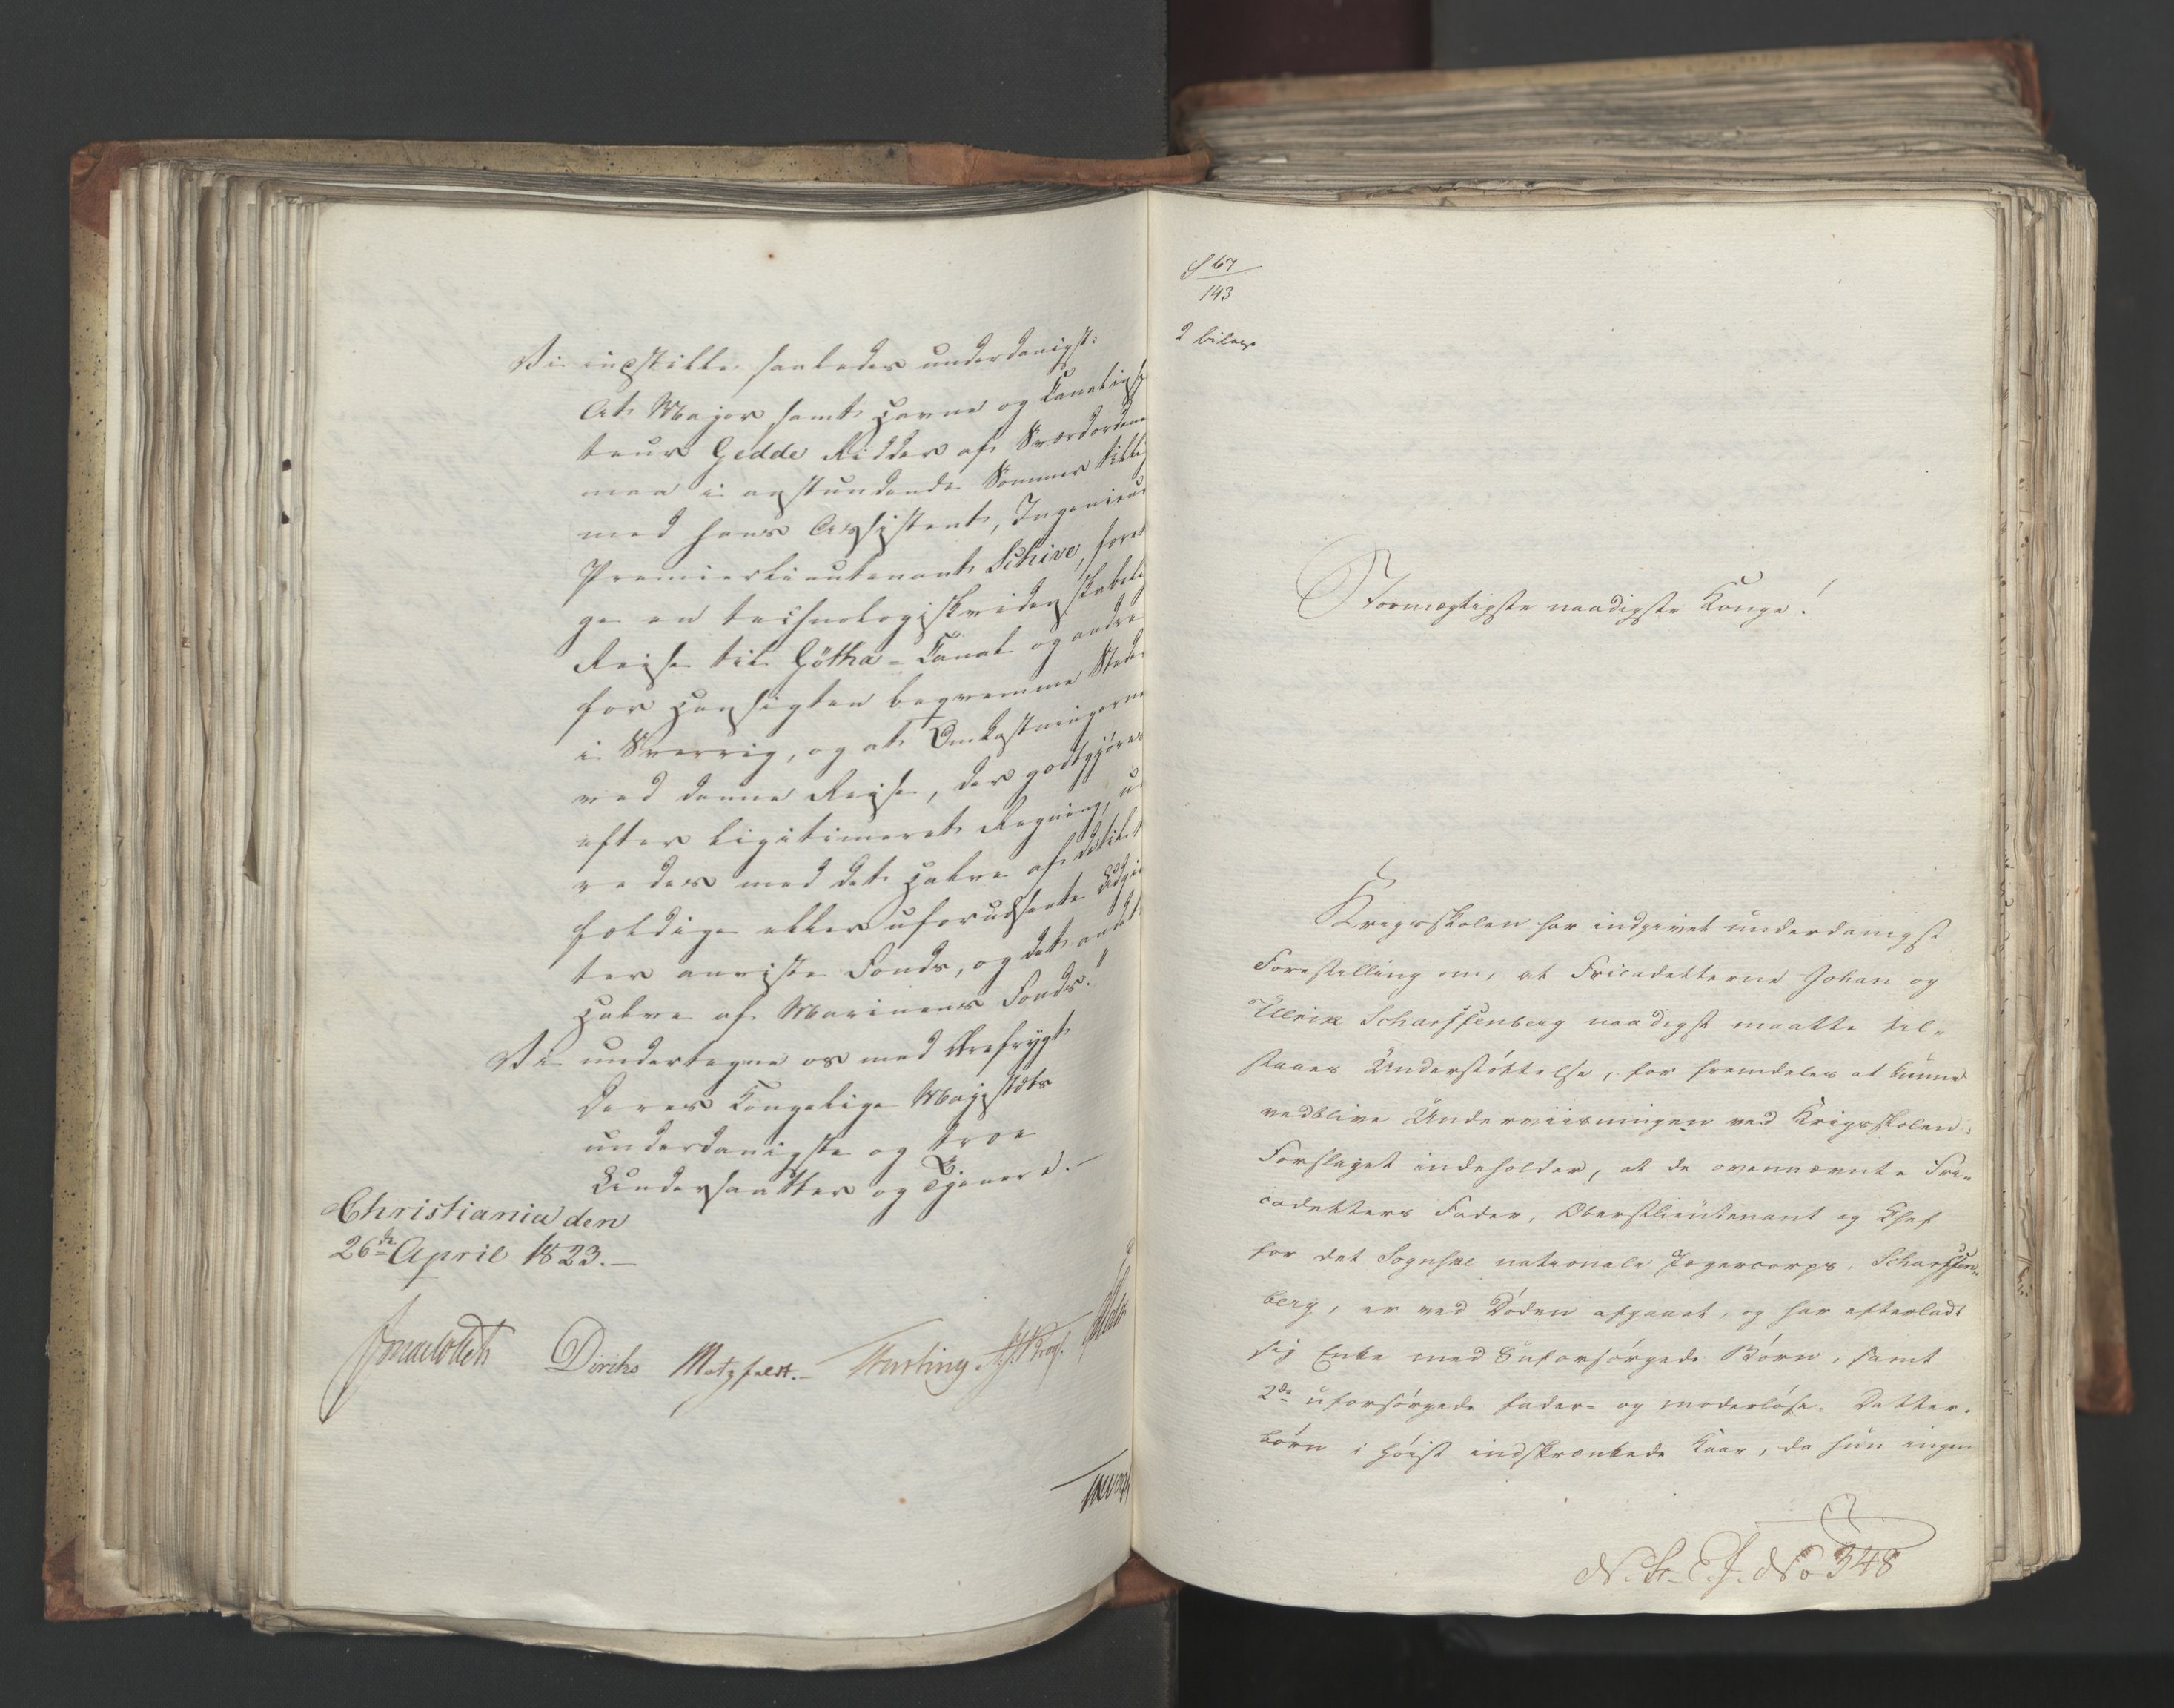 Vi indstille saaledes underdanigst:
At Major samt Havne og Canalinspec
teur Gedde Ridder af Sværdordenen
maa i anstundende Sommer tillige
med hans Assistent, Ingenieur
Premierlieutenant Schive, foreta
ge en technologiskvidenskabelig
Reise til Götha-Canal og andre
for Hensigten beqvemme Steder
i Sverrig, og at Omkostningerne
ved denne Reise, der godtgjöres
efter legitimeret Regning, ud
redes med det Halve af de til
fældige eller uforudseete Udgif
ter anviste Fonds, og det andet
Halve af Marinens Fonds."
Vi undertegne os med Ærefrygt
Deres Kongelige Majestæts
underdanigste og troe
Undersaatter og Tjenere.—
Christiania den
26de April 1823.—
Diriks Motzfeldt.—
S 67
143
2 bilage
Stormægtigste naadigste Konge!
Krigsskolen har indgivet underdanigst
Forestilling om, at Fricadetterne Johan og
Ulrik Scharffenberg naadigst maatte til-
staaes Understöttelse, for fremdeles at kunne
vedblive Underviisningen ved Krigsskolen.
Forslaget indeholder, at de ovennævnte Fri-
cadetters Fader, Oberstlieutenant og Chef
for det Sognske nationale Jægercorps, Scharffen-
berg, er ved Döden afgaaet, og har efterladt
sig Enke med 8 uforsörgede Börn, samt
2de uforsörgede fader- og moderlöse Datter-
börn i höist indskrænkede Kaar, da hun ingen
No 348